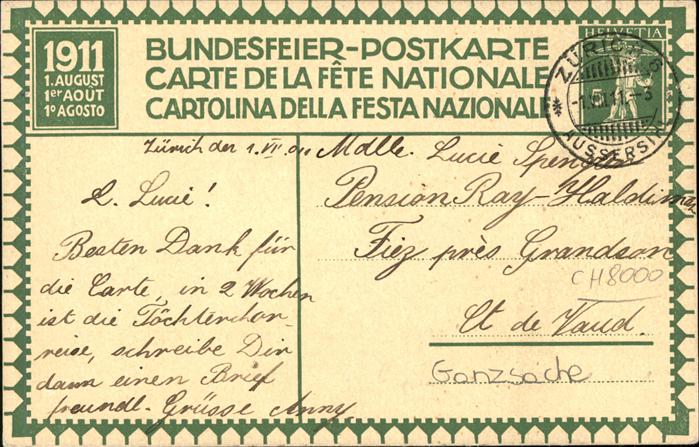 1911
1. AUGUST
1er AOÛT
1º AGOSTO
BUNDESFEIER-POSTKARTE
CARTE DE LA FÊTE NATIONALE
CARTOLINA DELLA FESTA NAZIONALE
HELVETIA
5
ZÜRICH
AUSSERSIHL
Zürich den 1. VII.
L. Lucie!
Besten Dank für
die Carte, in 2 Wochen
ist die Töchterchor-
reise, schreibe Dir
dann einen Brief
freundl. Grüsse Anny
Mdlle. Lucie
Pension Ray-Haldiman
Fiez près Grandson
CH8000
Ct de Vaud.
Ganzsache